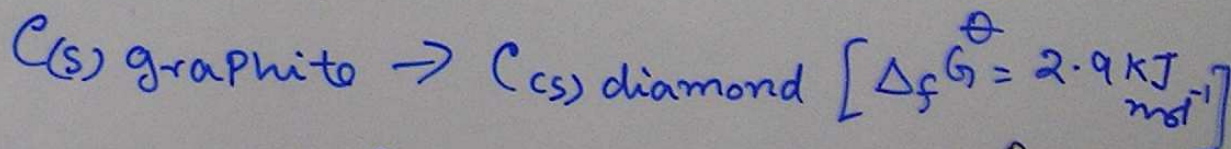 C(s) graphite → C(s) diamond [Δ𝑓G⦵ = 2.9 KJ mol⁻¹]